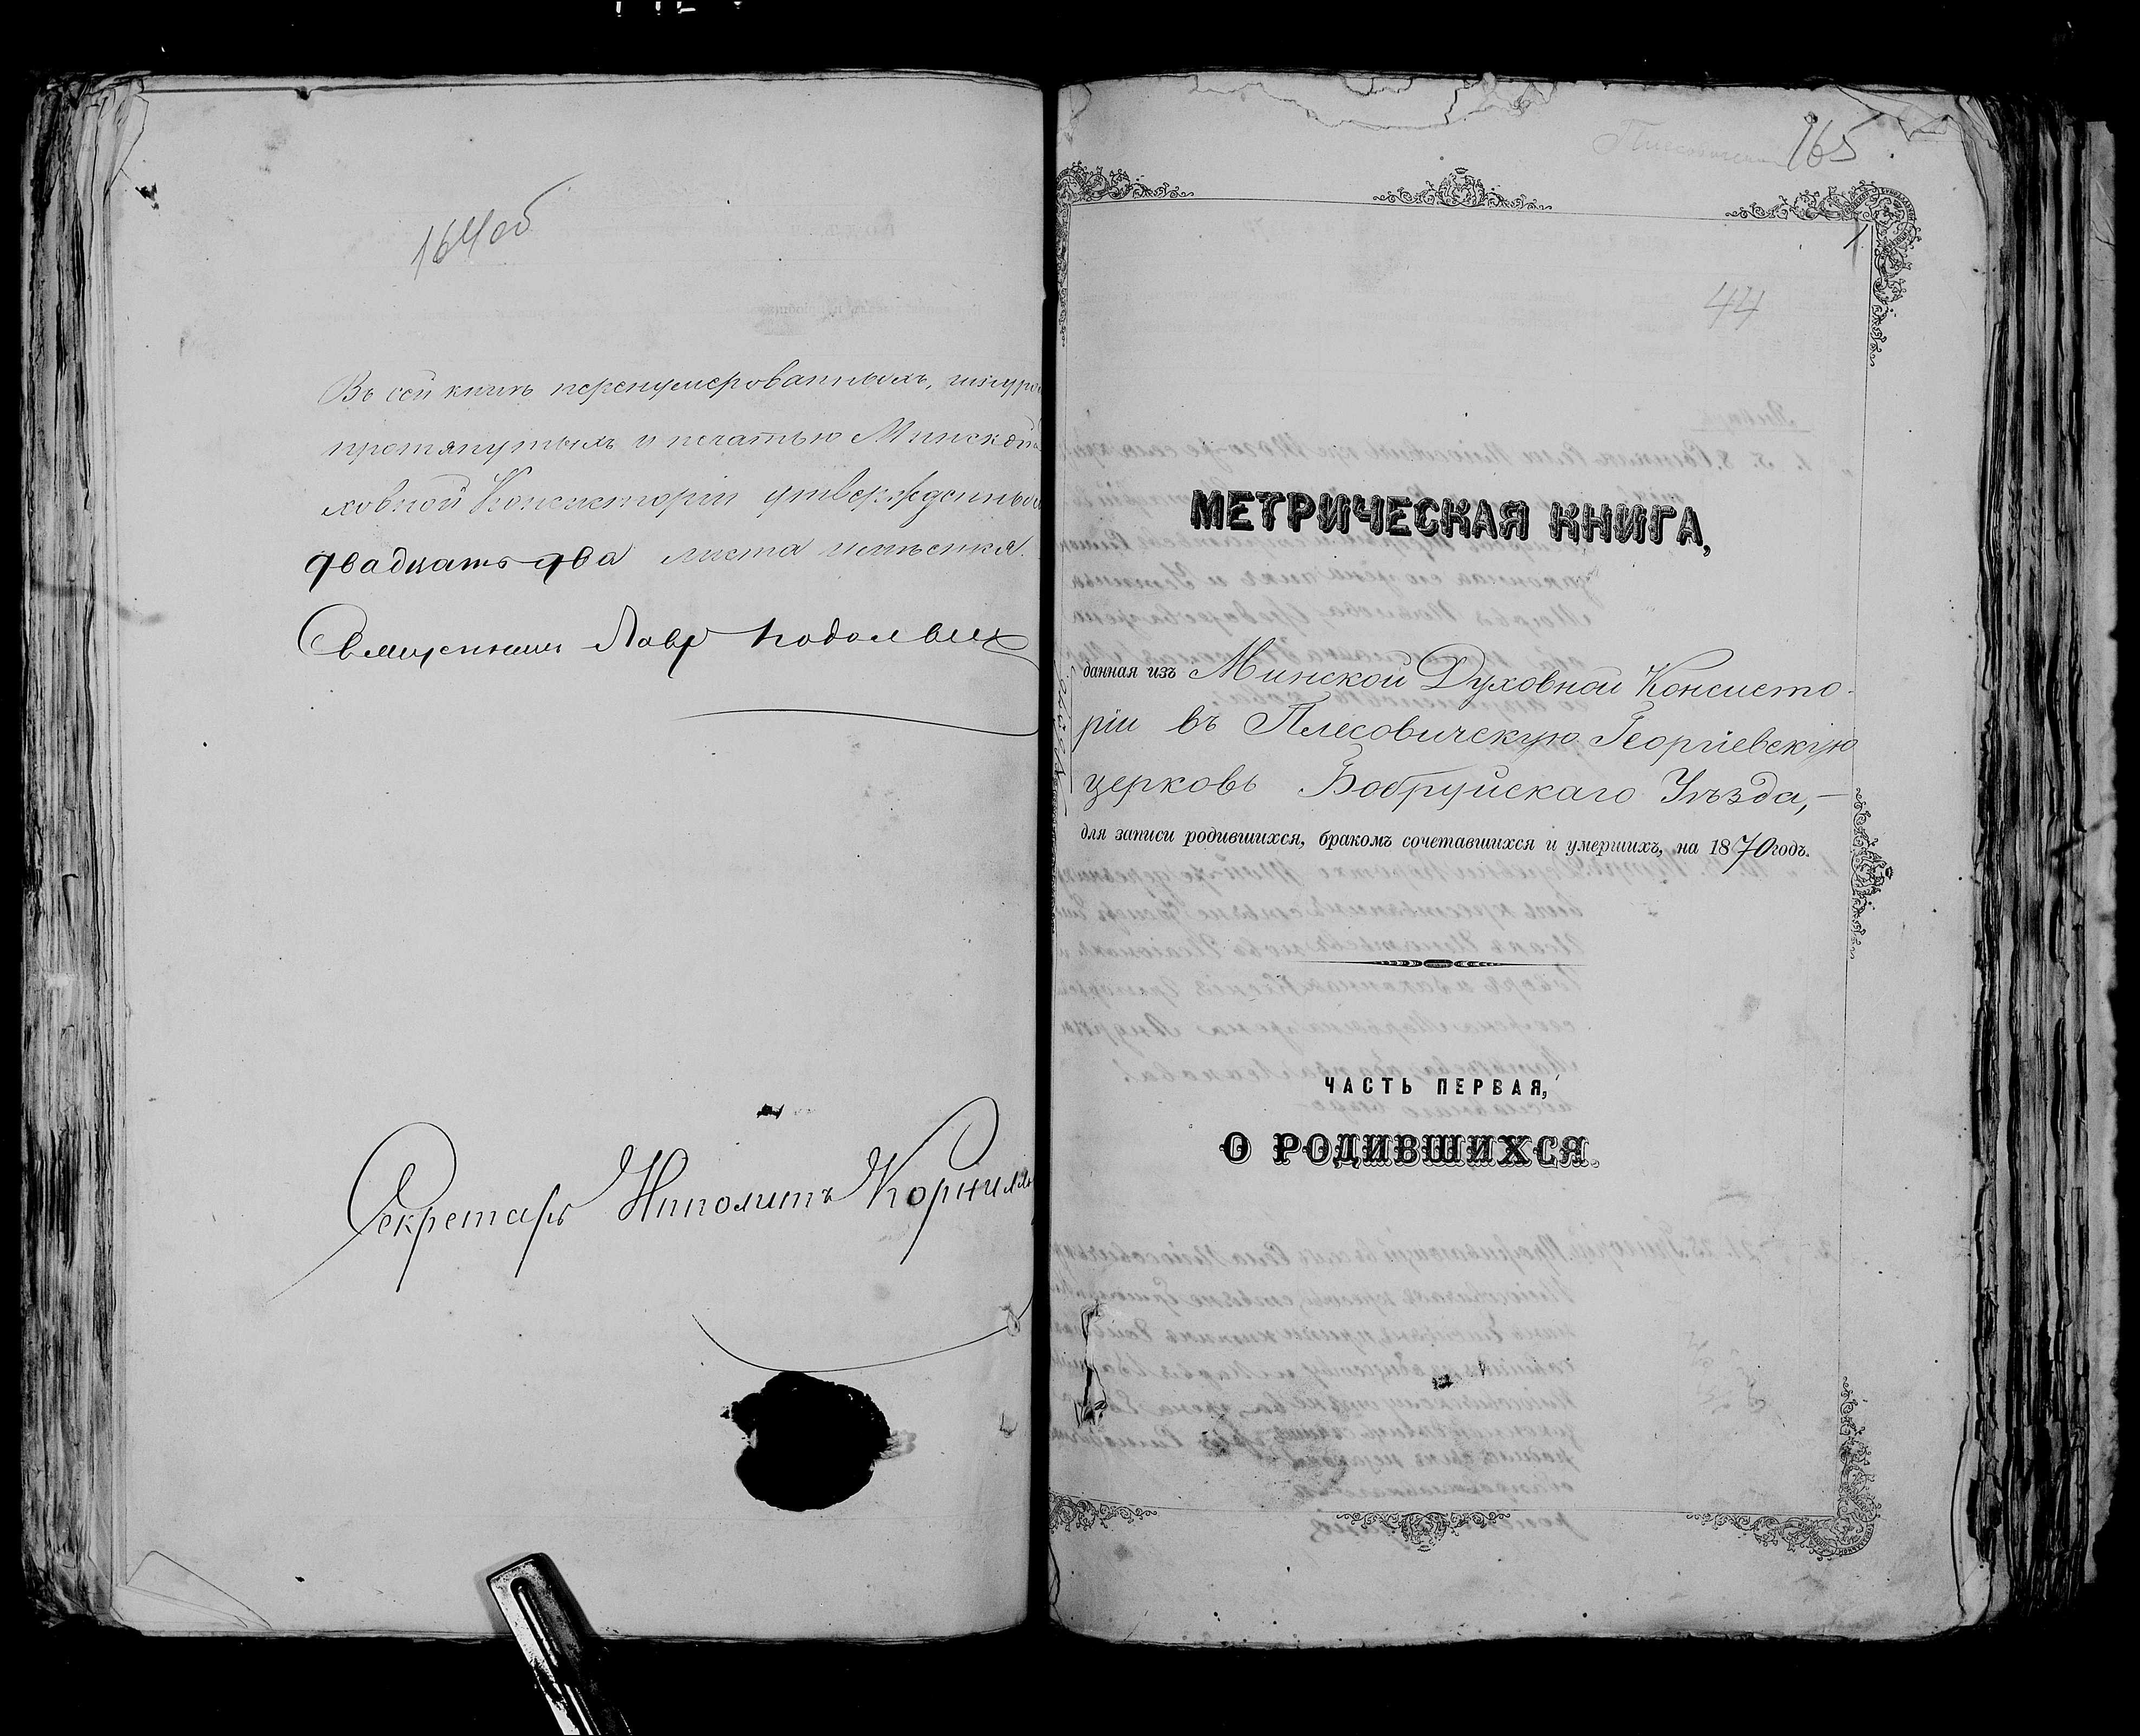 164об
Въ сей книгѣ перенумерованныхъ, шнуро
протянутыхъ и печатью Минской
ховной Консисторіи утвержденныхъ
двадцать два листа
Священникъ Лавр
Секретарь Ипполитъ Корнил
165
44
МЕТРИЧЕСКАЯ КНИГА,
данная изъ Минской Духовной Консисто-
ріи въ Плесовичскую Георгіевскую
церковь Бобруйскаго Уѣзда,—
для записи родившихся, бракомъ сочетавшихся и умершихъ, на 1870 годъ.
ЧАСТЬ ПЕРВАЯ,
О РОДИВШИХСЯ.